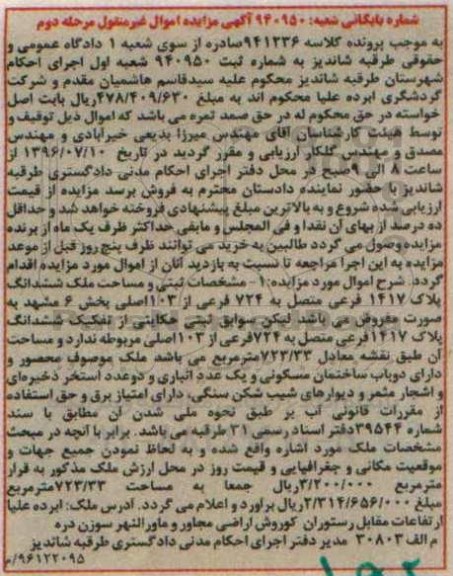 شماره بایگانی شعبه: ۹۴۰۹۵۰ آگهی مزایده اموال غیرمنقول مرحله دوم
به موجب پرونده کلاسه ۹۴۱۲۳۶صادره از سوی شعبه ۱ دادگاه عمومی و
حقوقی طرقبه شاندیز به شماره ثبت ۹۴۰۹۵۰ شعبه اول اجرای احکام
شهرستان طرقبه شاندیز محکوم علیه سیدقاسم هاشمیان مقدم و شرکت
گردشگری ابرده علیا محکوم اند به مبلغ ۴۷۸/۴۰۹/۶۳۰ریال بابت اصل
خواسته در حق محکوم له در حق صمد ثمره می باشد که اموال ذیل توقیف و
توسط هیئت کارشناسان آقای مهندس میرزا بدیعی خیرآبادی و مهندس
مصدق و مهندس گلکار ارزیابی و مقرر گردید در تاریخ ۱۳۹۶/۰۷/۱۰ از
ساعت ۸ الی ۹صبح در محل دفتر اجرای احکام مدنی دادگستری طرقبه
شاندیز با حضور نماینده دادستان محترم به فروش برسد مزایده از قیمت
ارزیابی شده شروع و به بالاترین مبلغ پیشنهادی فروخته خواهد شد و حداقل
ده درصد از بهای آن نقدا و فی المجلس و مابقی حداکثر ظرف یک ماه از برنده
مزایده وصول می گردد طالبین به خرید می توانند ظرف پنج روز قبل از موعد
مزایده به این اجرا مراجعه تا نسبت به بازدید آنان از اموال مورد مزایده اقدام
گردد. شرح اموال مورد مزایده:۱- مشخصات ثبتی و مساحت ملک ششدانگ
پلاک ۱۴۱۷ فرعی متصل به ۷۲۴ فرعی از ۱۰۳اصلی بخش ۶ مشهد به
صورت مفروض می باشد لیکن سوابق ثبتی حکایتی از تفکیک ششدانگ
پلاک ۱۴۱۷فرعی متصل به ۷۲۴فرعی از ۱۰۳اصلی مربوطه ندارد و مساحت
آن طبق نقشه معادل ۷۲۳/۳۳مترمربع می باشد ملک موصوف محصور و
دارای دوباب ساختمان مسکونی و یک عدد انباری و دوعدد استخر ذخیره‌ای
و اشجار مثمر و دیوارهای شیب شکن سنگی، دارای امتیاز برق و حق استفاده
از مقررات قانونی آب بر طبق نحوه ملی شدن آن مطابق با سند
شماره ۳۹۵۴۴دفتر اسناد رسمی ۳۱ طرقبه می باشد. برابر با آنچه در مبحث
مشخصات ملک مورد اشاره واقع شده و به لحاظ نمودن جمیع جهات و
موقعیت مکانی و جغرافیایی و قیمت روز در محل ارزش ملک مذکور به قرار
مترمربع ۳/۲۰۰/۰۰۰ریال جمعا به مساحت ۷۲۳/۳۳مترمربع
مبلغ ۲/۳۱۴/۶۵۶/۰۰۰ریال براورد و اعلام می گردد. آدرس ملک: ابرده علیا
ارتفاعات مقابل رستوران کوروش اراضی مجاور و ماورالنهر سوزن دره
م الف ۳۰۸۰۳ مدیر دفتر اجرای احکام مدنی دادگستری طرقبه شاندیز
۹۶۱۲۲۰۹۵/م